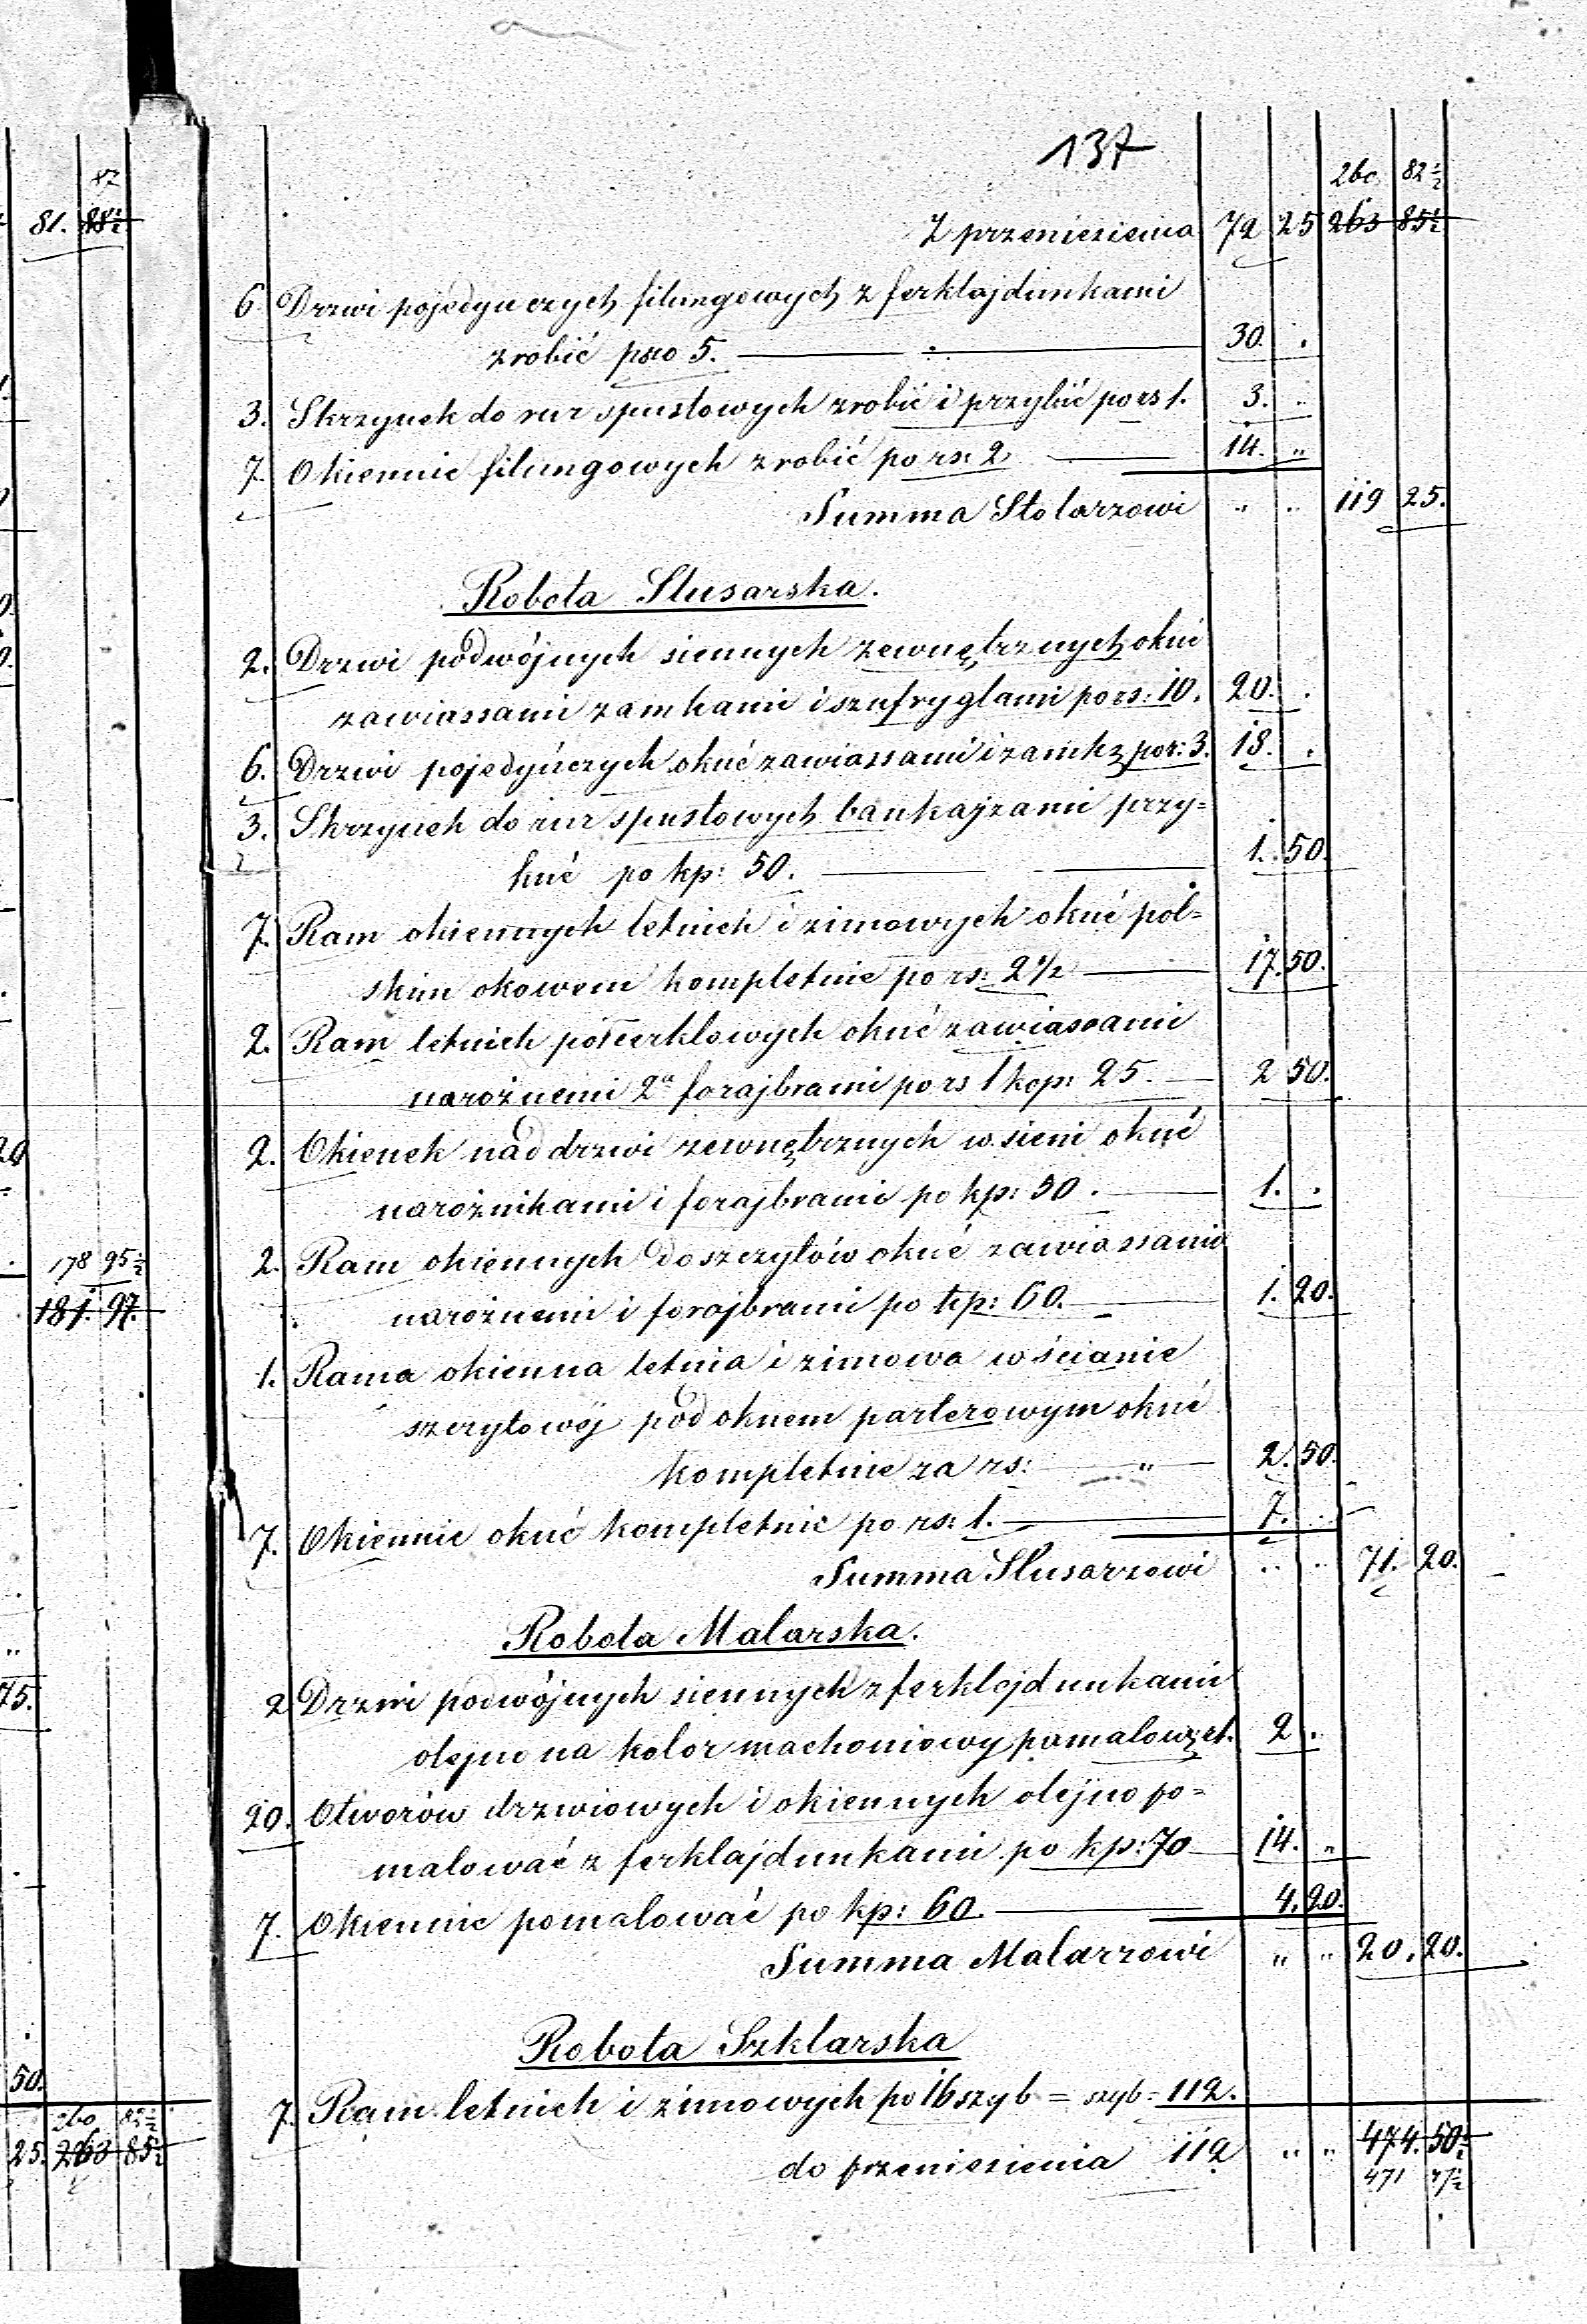 137
260 82½
Z przeniesienia 72 25 263 85½
6. Drzwi pojedynczych filungowych z ferklajdunkami
zrobić po rs 5. 30. .
3. Skrzynek do rur spustowych zrobić i przybić po rs 1. 3. "
7. Okiennic filungowych zrobić po rs. 2 14. "
Summa Stolarzowi " " 119 25.
Robota Slusarska.
2. Drzwi podwójnych siennych zewnętrznych okuć
zawiassami zamkami i szufryglami po rs: 10. 20. .
6. Drzwi pojedyńczych okuć zawiassami i zamkę po r: 3. 18. .
3. Skrzynek do rur spustowych bankajzami przy=
kuć po kp: 50. 1. 50.
7. Ram okiennych letnich i zimowych okuć pol=
skim okowem kompletnie po rs: 2½ 17. 50.
2. Ram letnich półcerklowych okuć zawiassami
narożnemi 2ª forajbrami po rs 1 kop: 25. 2 50.
2. Okienek nad drzwi zewnętrznych w sieni okuć
narożnikami i forajbrami po kp: 50. 1. .
2. Ram okiennych do szczytów okuć zawiassami
narożnemi i forajbrami po kp: 60. 1. 20.
1. Rama okienna letnia i zimowa w ścianie
szczytowéj pod oknem parterowym okuć
kompletnie za rs: " 2. 50.
7. Okiennic okuć kompletnie po rs: 1. 7. .
Summa Slusarzowi " " 71. 20.
Robota Malarska.
2 Drzwi podwójnych siennych z ferklejdunkami
olejno na kolor machoniowy pomalow 2 ..
20. Otworów drzwiowych i okiennych olejno po=
malować z ferklajdunkami po kp: 70 14. "
7. Okiennic pomalować po kp: 60. 4. 20.
Summa Malarzowi " " 20. 20.
Robota Szklarska
7. Ram letnich i zimowych po 16 szyb = szyb = 112.
do przeniesienia 112 " " 474. 50½
471 47½